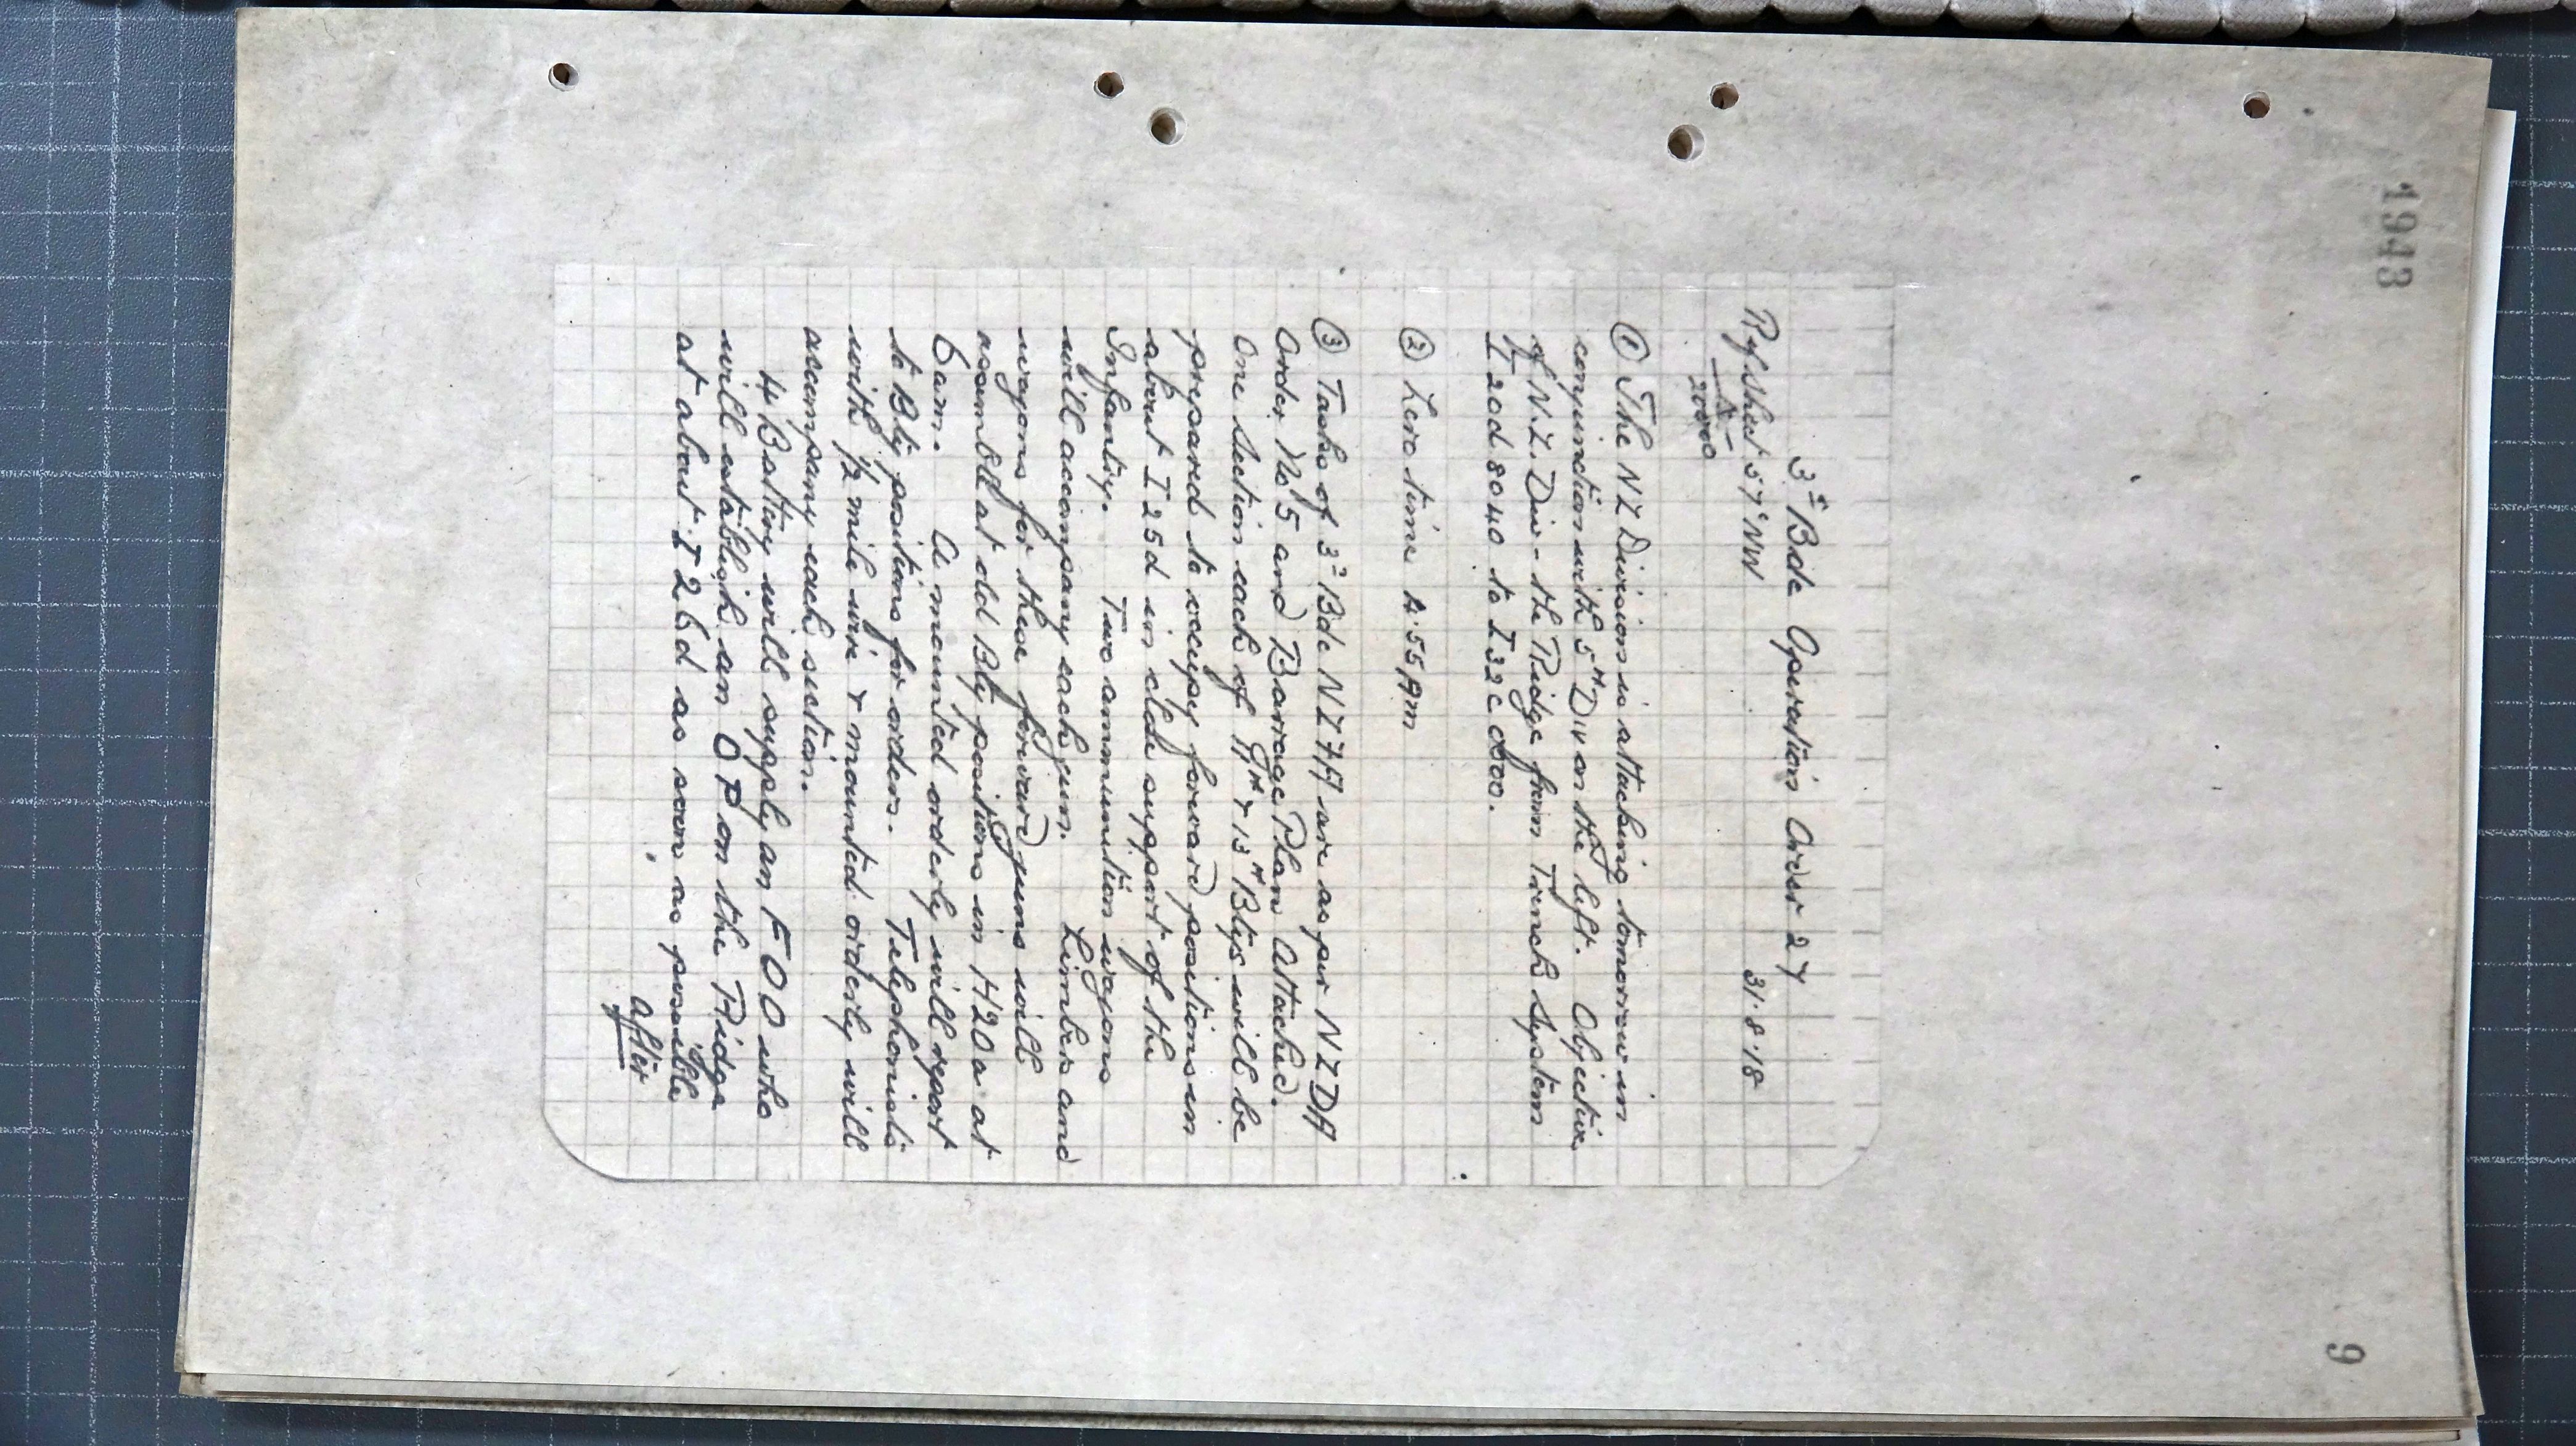 19413
9
3ᵈ Bde Operation Order 27
Ref Sheet 57ᶜ NW 31.8.18
1
20000
① The NZ Division is attacking tomorrow in
conjunction with 5ᵗʰ Div on the left. Objective
of N.Z. Div - the Ridge from Trench System
I 20d 80 40 to I 32c 0000.
② Zero time 4.55 AM
③ Tasks of 3ᵈ Bde NZFA are as per NZDA
Order No 5 and Barrage Plan Attached.
One Section each of 11ᵗʰ & 13ᵗʰ Btys will be
prepared to occupy forward positions in
about I 25d in close support of the
Infantry. Two ammunition wagons
will accompany each gun. Limbers and
wagons for these forward guns will
assemble at old Bty positions in H20a at
6 am. A mounted orderly will report
to Bty positions for orders. Telephonists
with 1/2 mile wire & mounted orderly will
accompany each section.
4 Battery will supply an FOO who
will establish an OP on the Ridge
at about I 26d as soon as possible
after